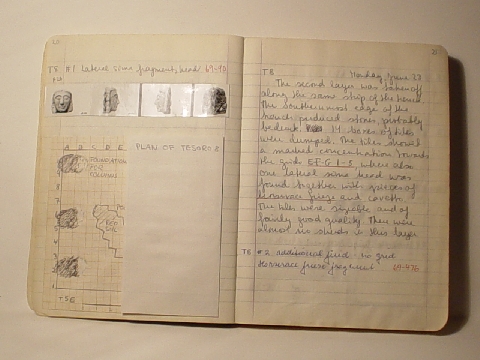 20
T8 #1 lateral sima fragments, head 69-40
A B C D E
FOUNDATION
FOR
COLUMNS
RED
SOIL
PLAN OF TESORO 8
T8E
T8 Monday, June 23
The second layer was taken off
along the same strip of the trench.
The southernmost edge of the
trench produced stones, probably
bedrock. 14 boxes of tiles
were dumped. The tiles showed
a marked concentration towards
the grids E-F-G 1-2 where also
one lateral sima head was
found together with pieces of
horserace frieze and cavetto.
The tiles were sizeable and of
fairly good quality. There were
almost no sherds in this layer
T8 #2 additional find - no grid
Horserace frieze fragment 69-476